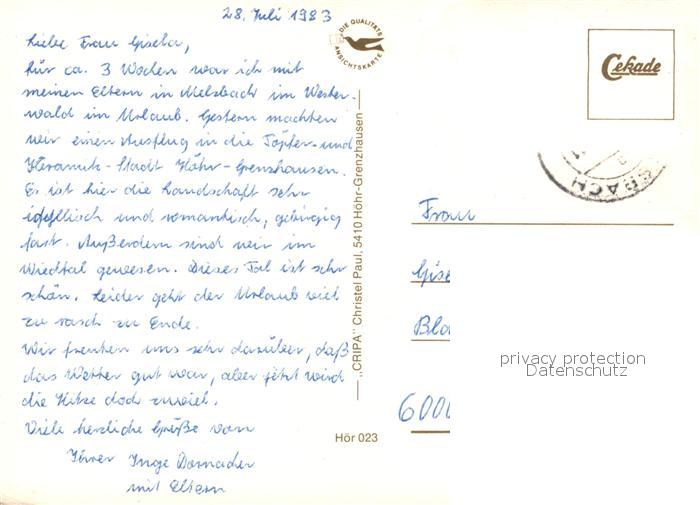 28. Juli 1983
Liebe Frau Gisela,
für ca. 3 Wochen war ich mit
meinen Eltern in Melsbach im Wester-
wald im Urlaub. Gestern machten
wir einen Ausflug in die Töpfer- und
Keramik-Stadt Höhr-Grenzhausen.
Es ist hier die Landschaft sehr
idyllisch und romantisch, gebirgig
fast. Außerdem sind wir im
Wiedtal gewesen. Dieses Tal ist sehr
schön. Leider geht der Urlaub viel
zu rasch zu Ende.
Wir freuten uns sehr darüber, daß
das Wetter gut war, aber jetzt wird
die Hitze doch zuviel.
Viele herzliche Grüße von
Inge
mit Eltern
DIE QUALITÄTS
ANSICHTSKARTE
„CRIPA" Christel Paul, 5410 Höhr-Grenzhausen
Hör 023
Cekade
BACH
Frau
Gise
Bl
600
privacy protection
Datenschutz